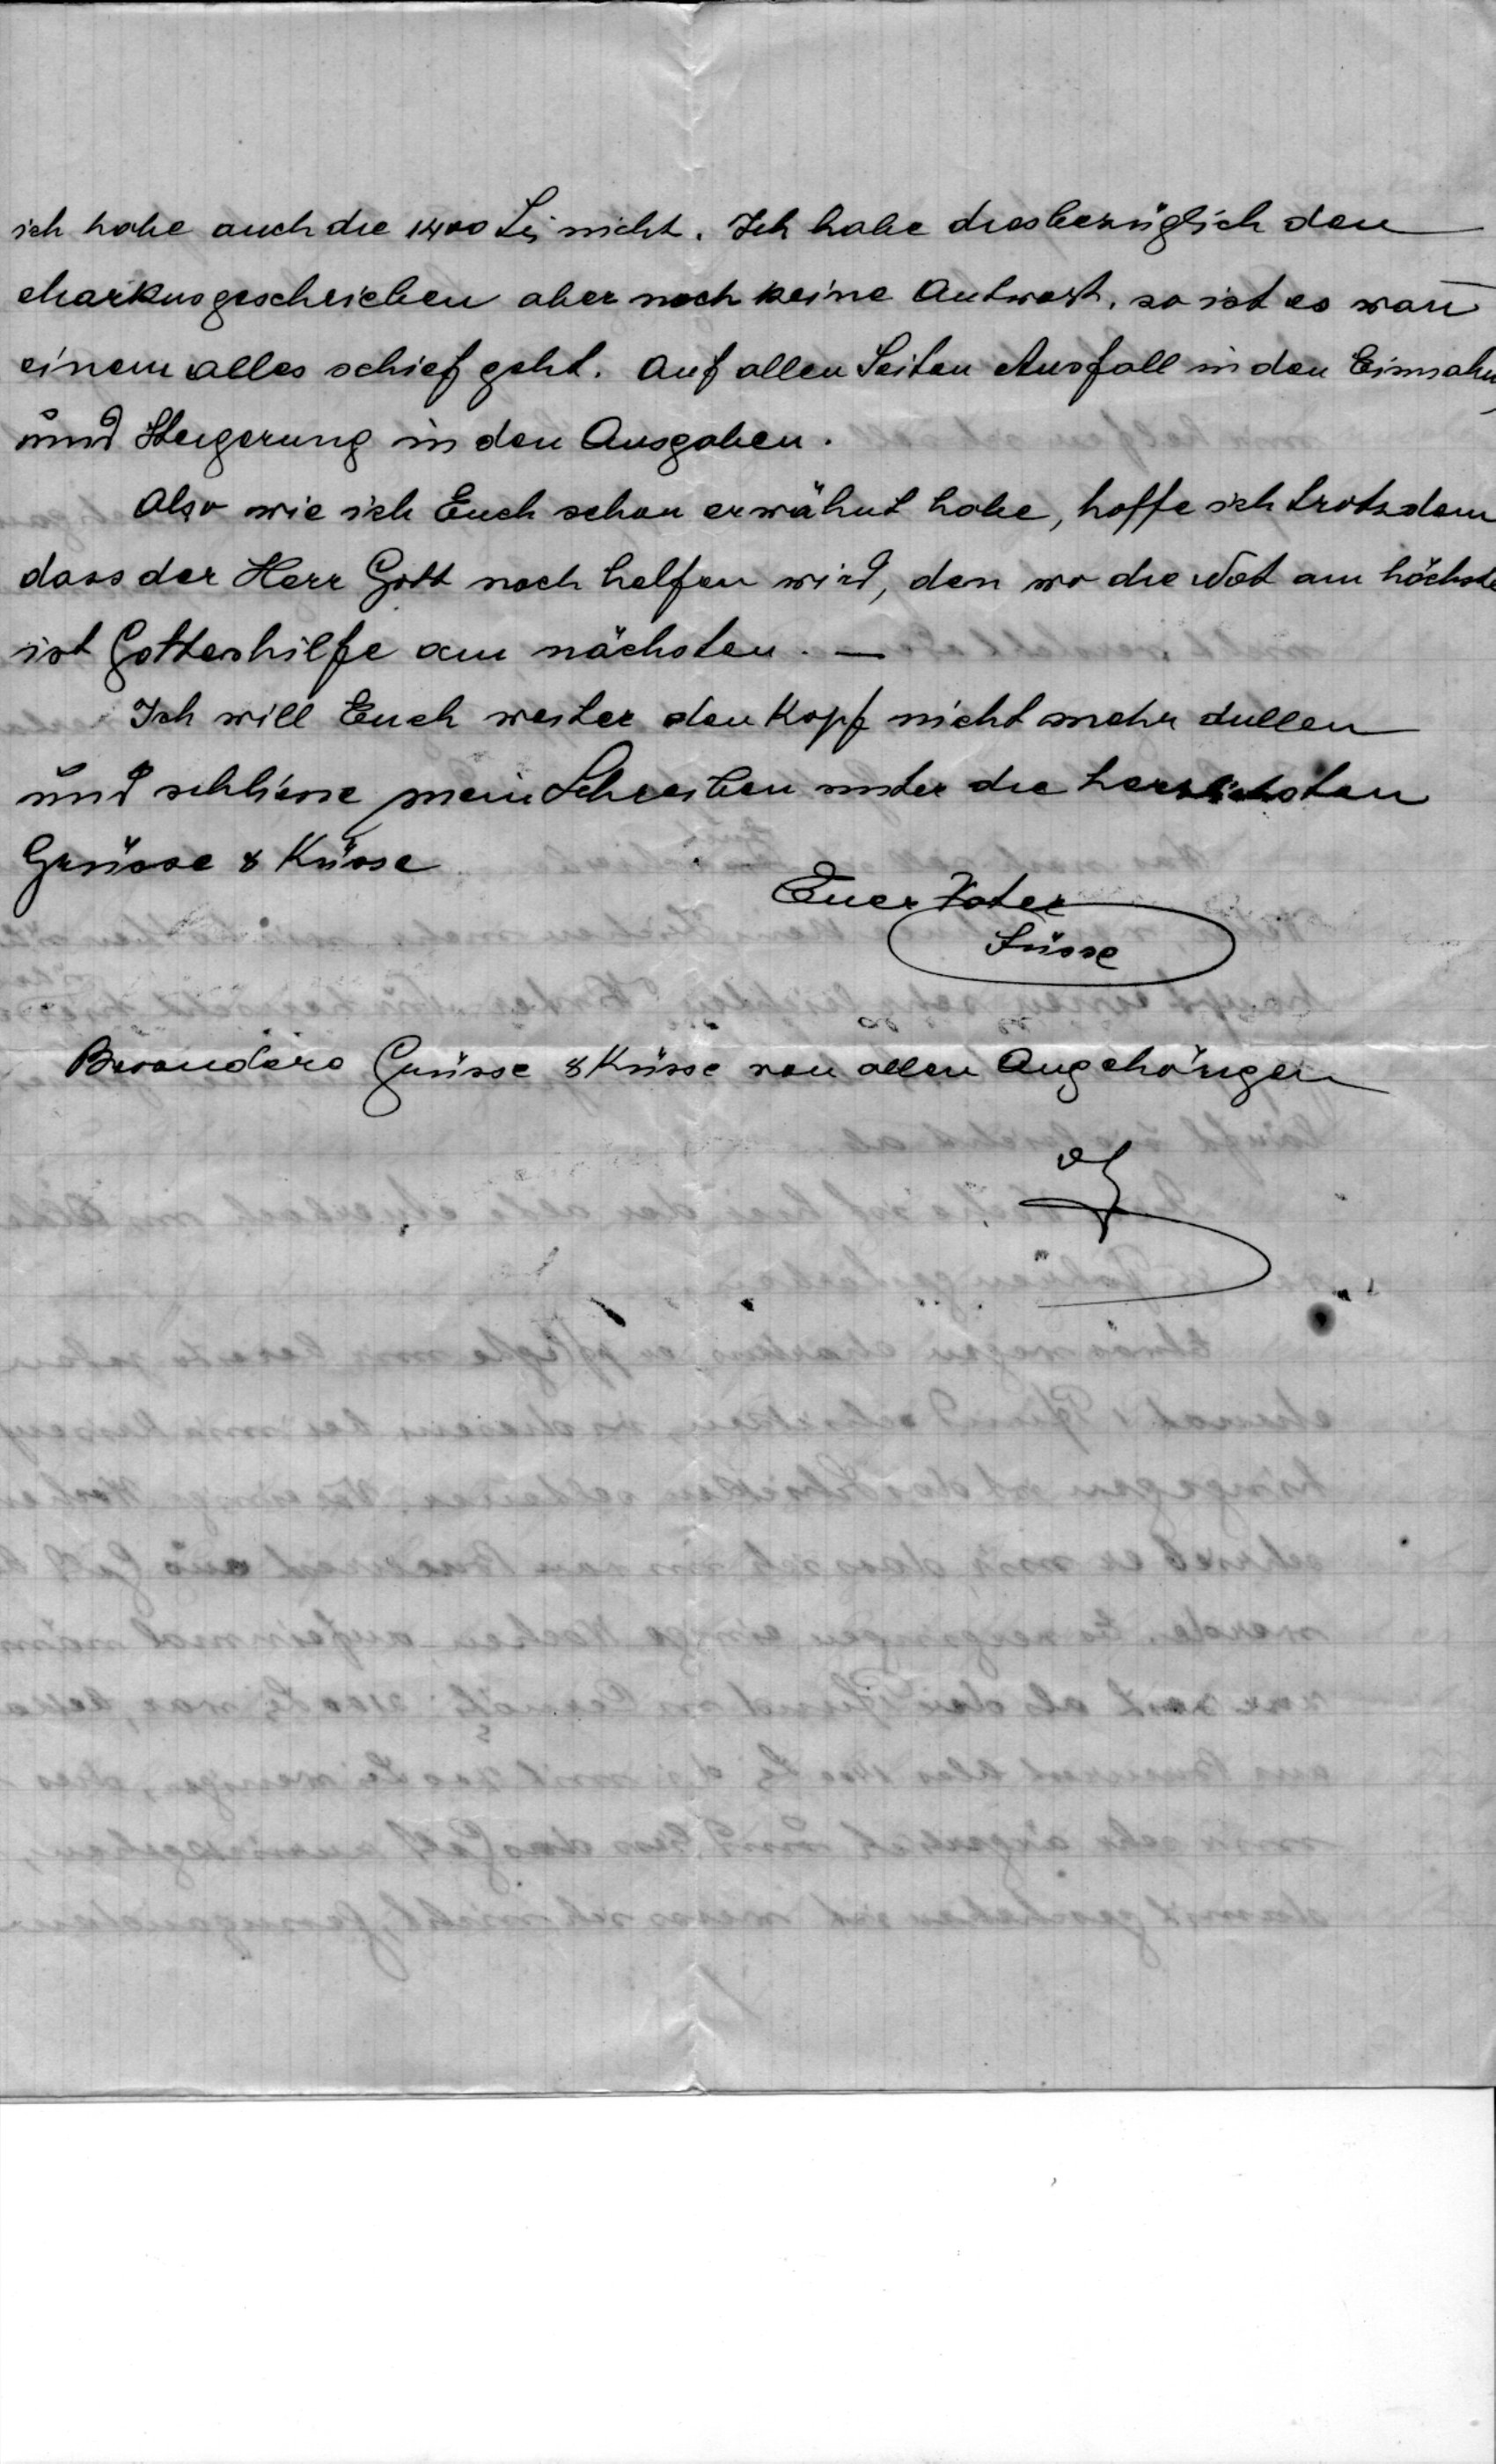 ich habe auch die 1400 Lei nicht. Ich habe diesbezüglich den
Markus geschrieben aber noch keine Antwort. so ist es wan̄
einem alles schief geht. Auf allen Seiten Ausfall in den Einnahm
und Steigerung in den Ausgaben.
Also wie ich Euch schon erwähnt habe, hoffe ich trotzdem
dass der Herr Gott noch helfen wird, den wo die Not am höchste
ist Gotteshilfe am nächsten. —
Ich will Euch weiter den Kopf nicht mehr dullen
und schliesse mein Schreiben unter die herzlichsten
Grüsse & Küsse
Euer Vater
Süsse
Besonders Grüsse & Küsse von allen Angehörigen